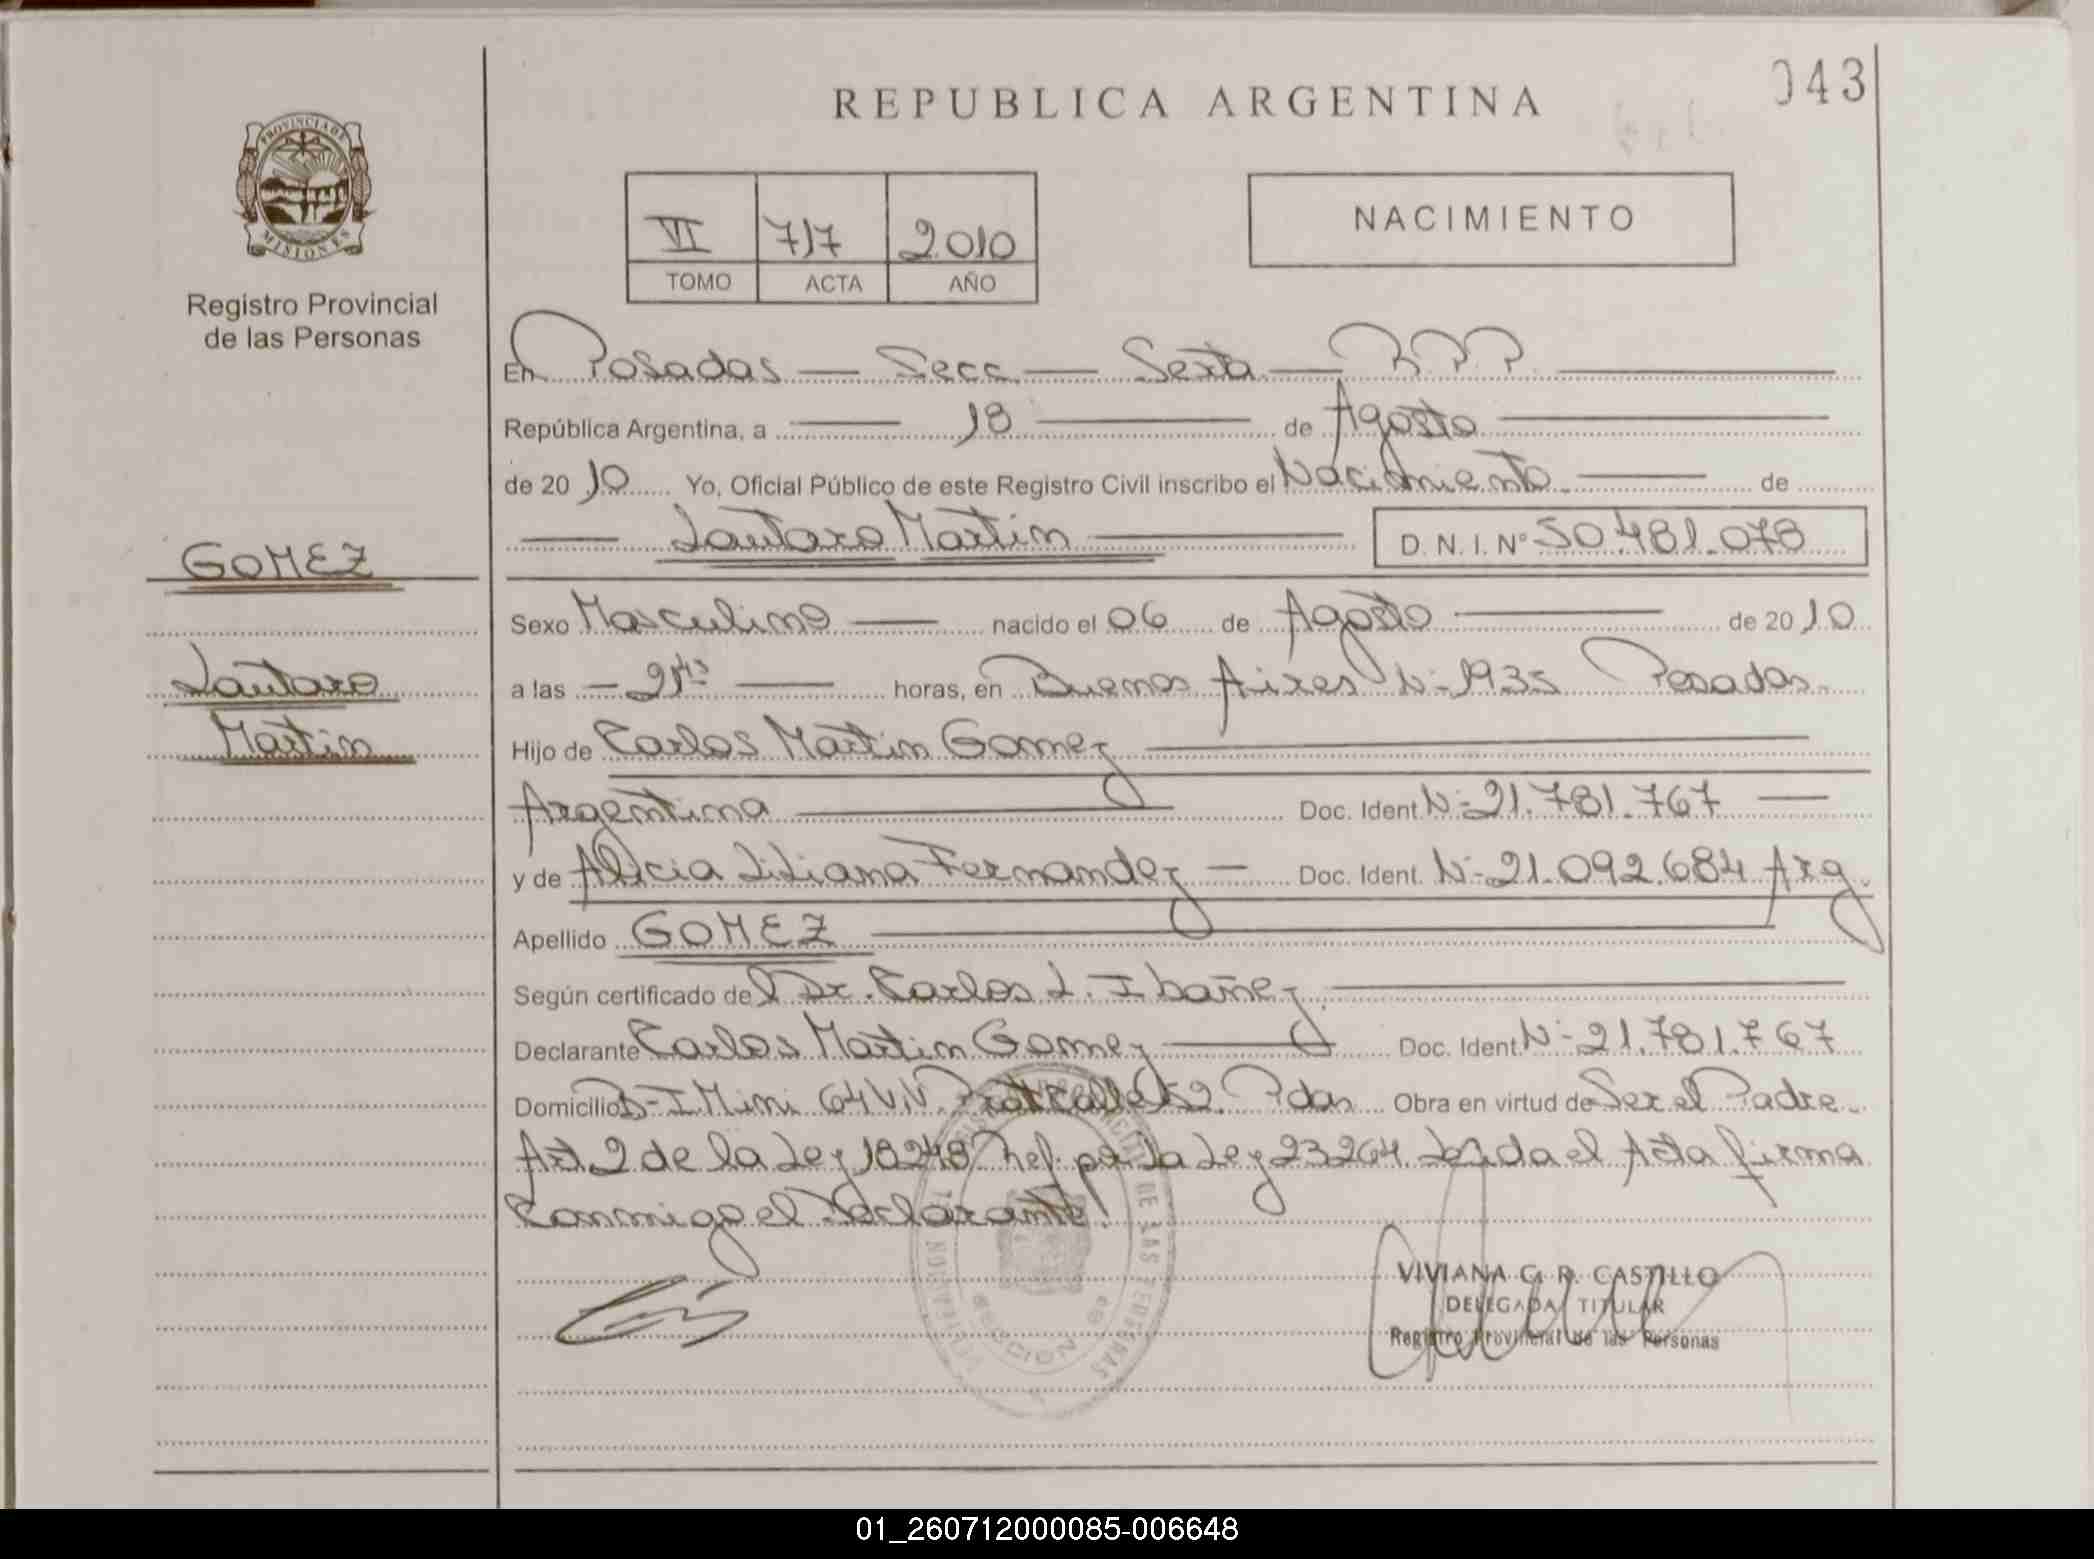 REPUBLICA ARGENTINA
043
PROVINCIA DE
MISIONES
Registro Provincial
de las Personas
VI 717 2010
TOMO ACTA AÑO
NACIMIENTO
En Posadas — Secc. — Sexta — R.P.P.
República Argentina, a — 18 — de Agosto
de 2010 Yo, Oficial Público de este Registro Civil inscribo el Nacimiento — de
— Lautaro Martin — D. N. I. Nº 50.481.078
GOMEZ
Lautaro
Martin
Sexo Masculino — nacido el 06 de Agosto — de 2010
a las — 21hs — horas, en Buenos Aires Nº 1935 Posadas
Hijo de Carlos Martin Gomez
Argentina — Doc. Ident. Nº 21.781.767 —
y de Alicia Liliana Fernandez — Doc. Ident. Nº 21.092.684 Arg.
Apellido GOMEZ
Según certificado del Dr. Carlos L. Ibañez
Declarante Carlos Martin Gomez — Doc. Ident. Nº 21.781.767
Domicilio Bº I. Mini 64 Viv. 52 Pdas Obra en virtud de Ser el Padre
Art 2 de la Ley 18248 ref. por la Ley 23264 Leida el Acta firma
Conmigo el Declarante!
VIVIANA C. R. CASTILLO
DELEGADA TITULAR
Registro Provincial de las Personas
DE LAS PERSONAS
SECCION 6ª
01_260712000085-006648